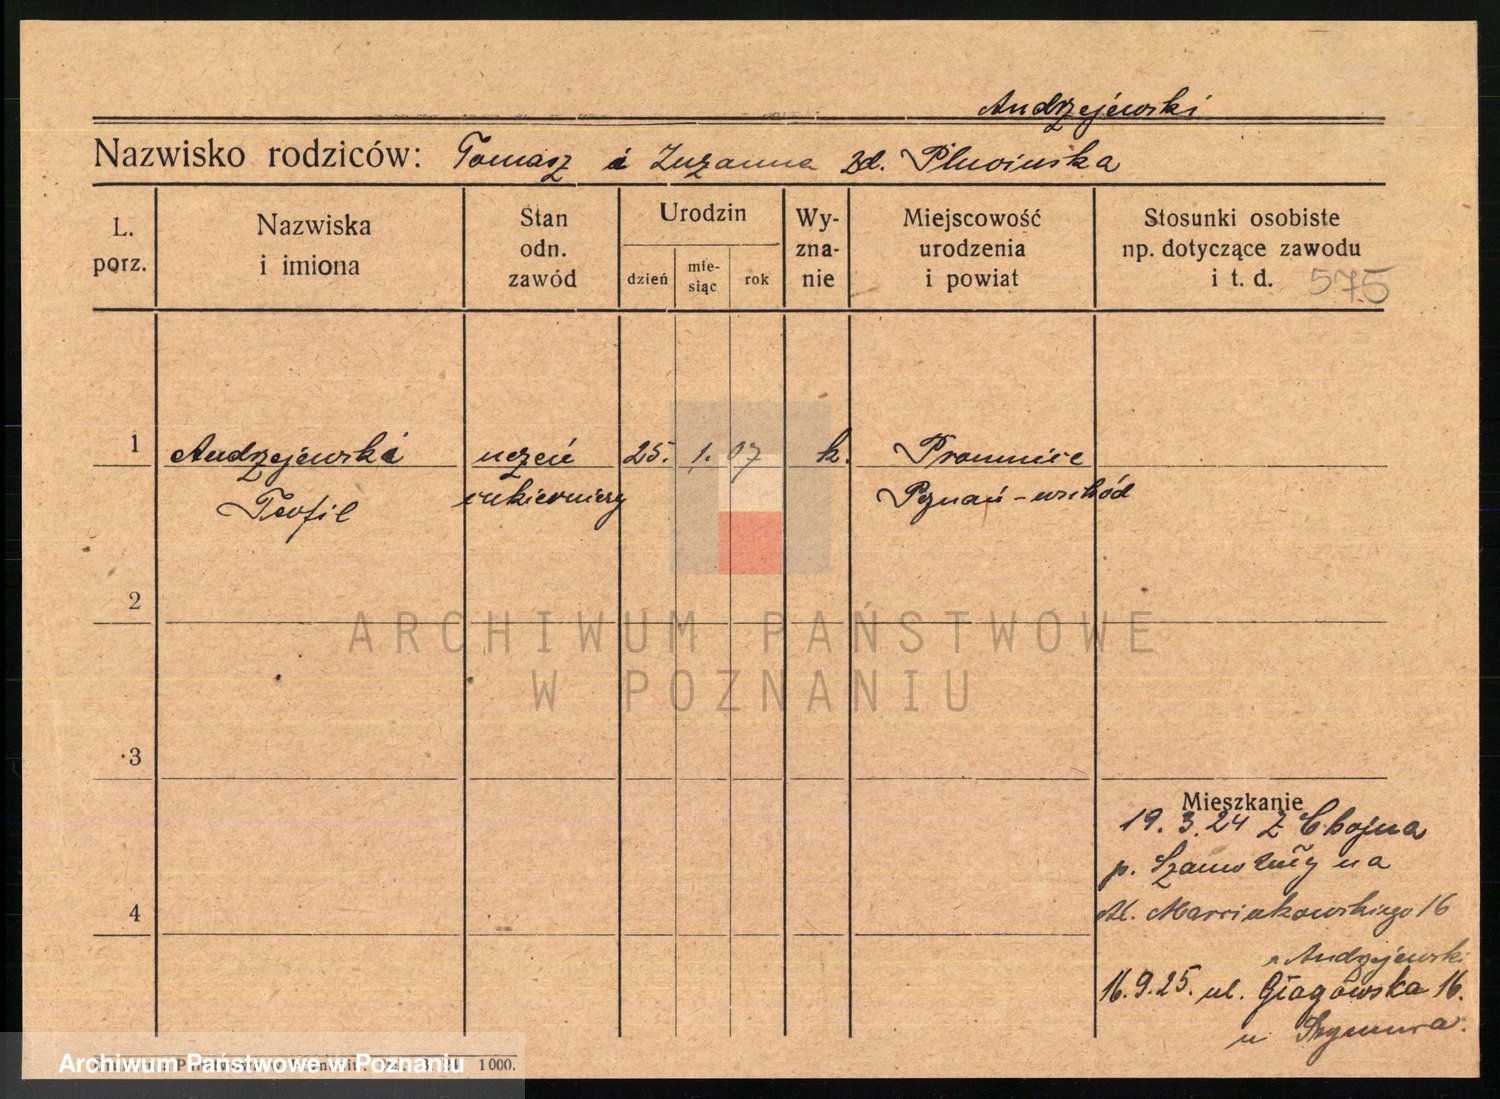 Andrzejewski
Nazwisko rodziców: Tomasz i Zuzanna zd. Pluvinska
L. porz.
Nazwiska i imiona
Stan odn. zawód
Urodzin
dzień
mie-siąc
rok
Wy-zna-nie
Miejscowość urodzenia i powiat
Stosunki osobiste np. dotyczące zawodu i t. d.
575
1 Andrzejewski uczeń 25. 1. 07 k. Promnice
Teofil cukierniczy Poznań-wschód
2
3
4
Mieszkanie
19. 3. 24 z Chojna
p. Szamotuły na
Al. Marcinkowskiego 16
Andrzejewski
16. 9. 25. ul. Głogowska 16.
u Szymura.
1000.
ARCHIWUM PAŃSTWOWE
W POZNANIU
Archiwum Państwowe w Poznaniu